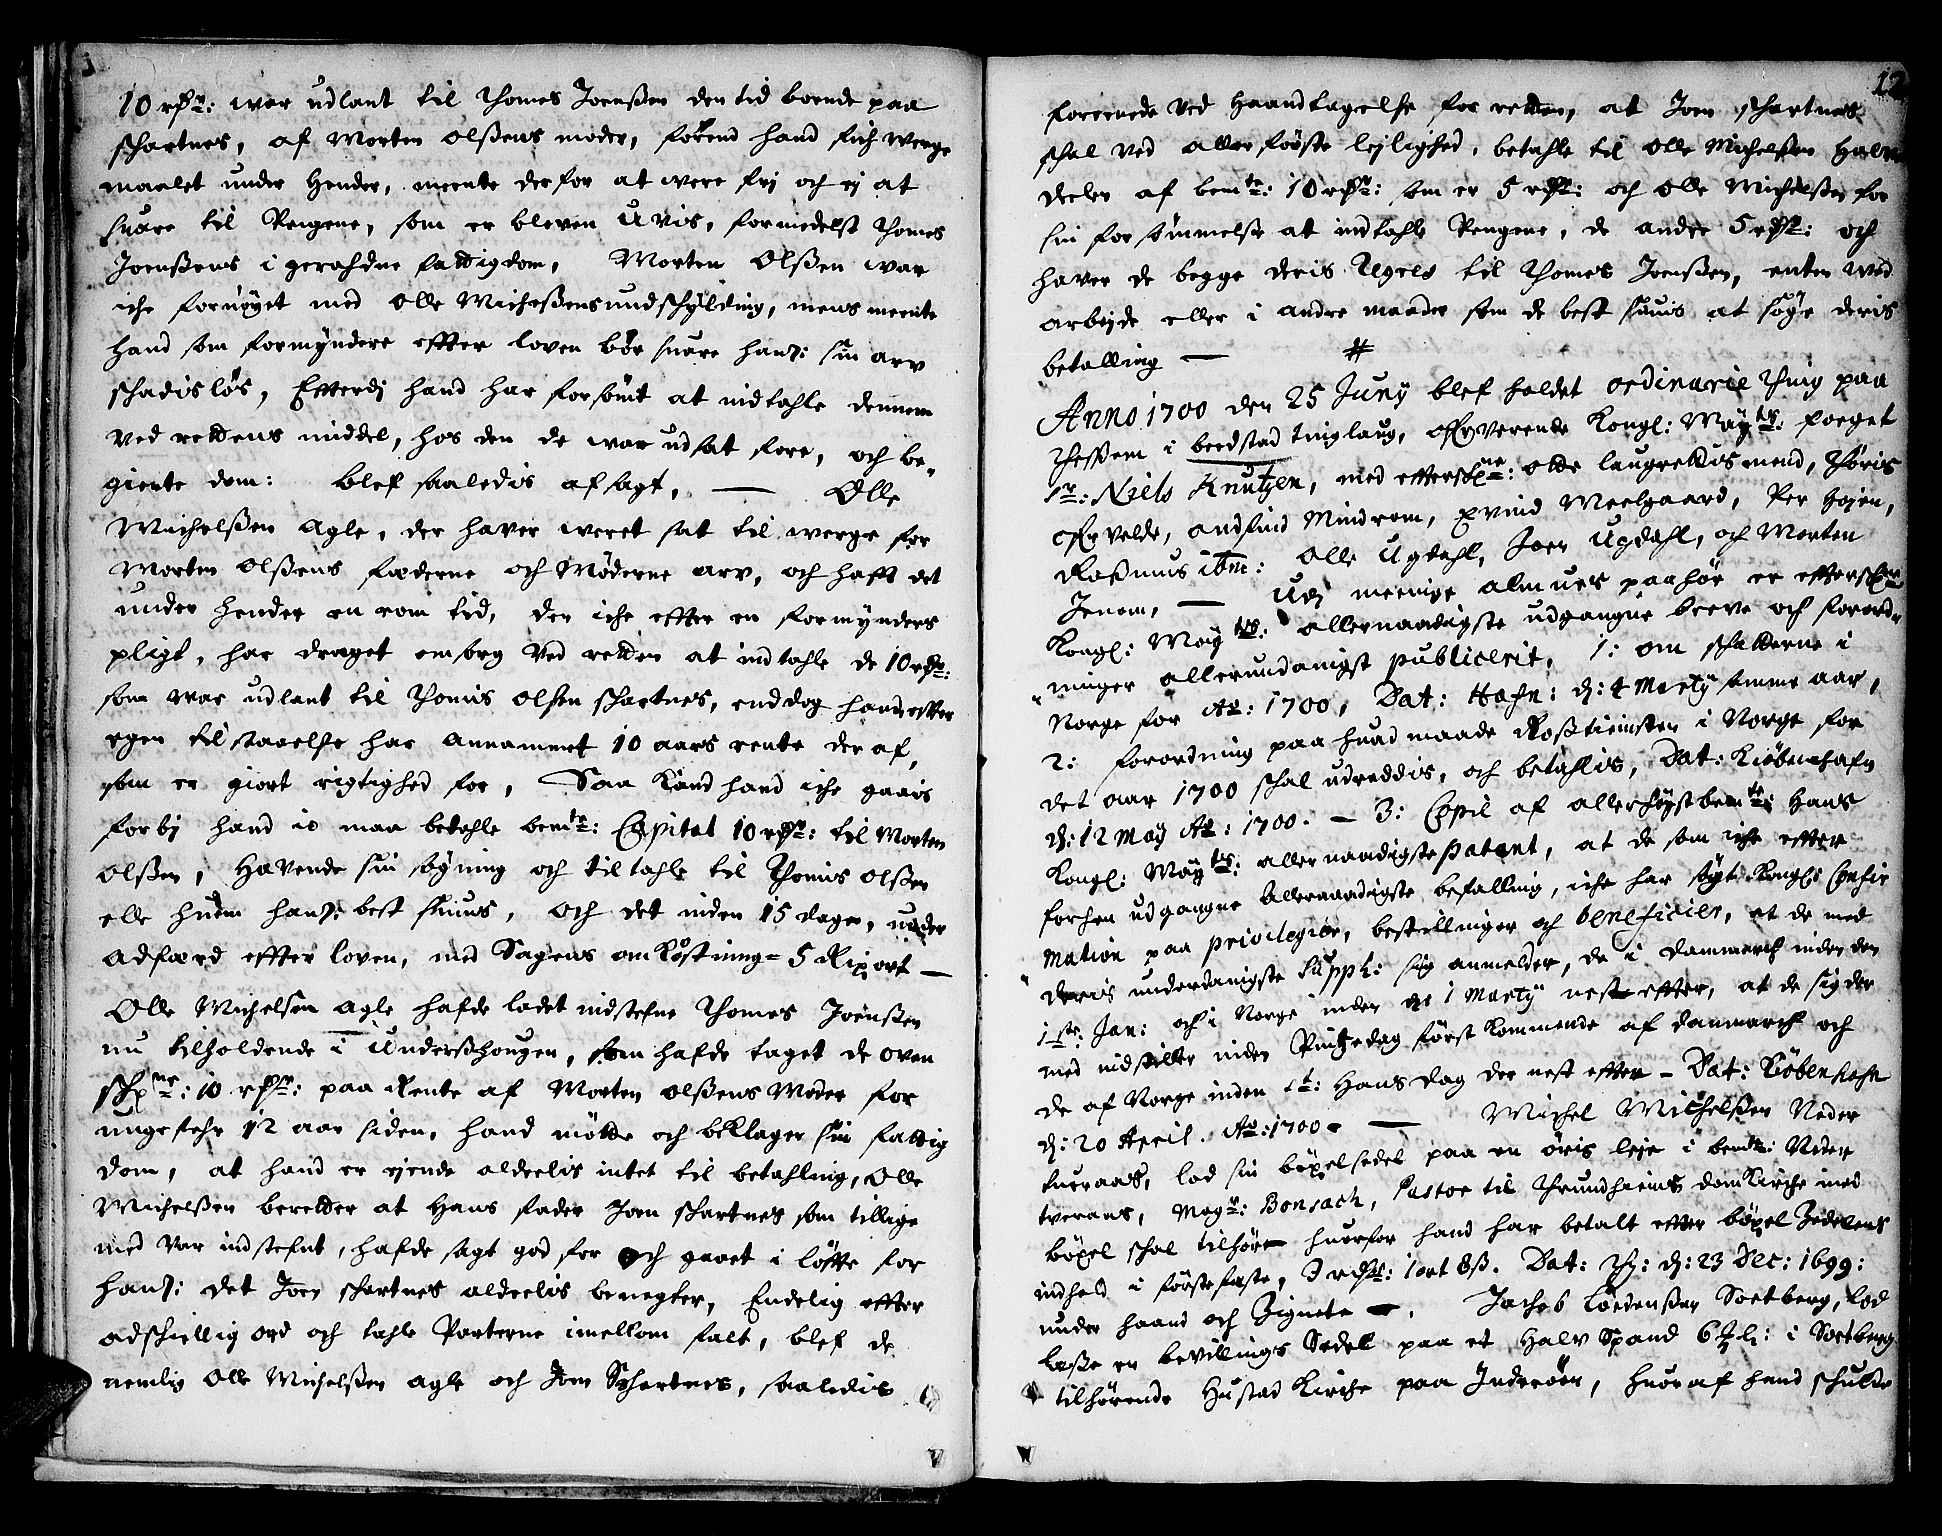 10 rdr: war udlant til Thomes Joenssen den tid boende paa
schartnes, af Morten olssens moder, förend hand fich werge
maalet under Hender, meente derfor at were frj och ej at
suare til Pengene, som er bleven Uvis, formedelst Thomes
Joenssens igerahdne fattigdom, Morten Olssen war
iche fornöyet med olle Michelssens undschylding, mens meente
hand som formyndere effter loven bör suare hans: sin arv
schadislös, Efterdj hand har forsömt at indtahle dennem
ved rettens middel, hos den de war udsat fore, och be¬
gierte dom: blef saaledis afsagt, — Olle
Michelssen Agle, der haver weret sat til werge for
Morten olssens fæderne och Möderne arv, och hafft det
under hender en rom tid, der iche effter en formynders
pligt, har draget omsorg ved retten at indtahle de 10 rdr:
som war udlant til Thomis olssen schartnes, enddog hand effter
egen tilstaaelse har Annammet 10 aars rente der af,
som er giort rigtighed for, Saa kand hand iche gaais
forbj hand io maa betahle bemte: Capital 10 rdr: til Morten
olssen, Havende sin sögning och tiltahle til Thomis olssen
elle huem hans: best siuns, och det inden 15 dager, under
adfærd effter loven, med Sagens omkostning 5 Rixort —
Olle Michelsen Agle hafde ladet indstefne Thomes Joenssen
nu tilholdende i Undersshougen, som hafde taget de oven
schrne: 10 rdr: paa Rente af Morten olssens Moder for
ungefehr 12 aar siden, hand mötte och beklager sin fattig
dom, at hand er ejende aldeelis intet til betahling, Olle
Michelssen beretter at Hans fader Joen schartnes som tillige
med var indstefnt, hafde sagt god for och gaaet i löffte for
hans: det Joen schartnes aldeelis benegter, Endelig effter
adschiellig ord och tahle Parterne imellom falt, blef de
nemlig olle Michelssen agle och Joen Schartnes, saaledis
12
foreenede ved Haandtagelse for retten, at Joen schartnes
schal ved allerförste lejlighed, betahle til olle Michelssen Halv
deelen af bemte: 10 rdr: som er 5 rdr: och olle Michelssen for
sin forsömmelse at indtahle Pengene, de andre 5 rdr: och
haver de begge deris Regres til Thomes Joenssen, enten ved
arbejde eller i andre maader som de best siunis at söge deris
betalling —
Anno 1700 den 25 Juny blef holdet ordinarie Ting paa
Thessem i beedstad tinglaug, ofververende Kongl: Maÿts: foeget
Sr: Niels Knutzen, med effterschrne: otte laugrettismend, Thöris
offvelde, andfind Mindrom, Evind Meelgaard, Per Hojen,
Rassmus ibm: Olle Ugdahl, Joen Ugdahl, och Morten
Jenem, — Udj meenige almues paahör er effterschrne
Kongl: Mayts: allernaadigste udgangne breve och forord¬
ninger allerundanigst publicerit, 1: om schatterne i
Norge for Ao: 1700, Dat: Hafn: d: 4 Marty samme aar,
2: forordning paa huad maade Rosstienisten i Norge for
det aar 1700 schal udreddis, och betahlis, Dat: Kiöbenhafn
d: 12 May Ao: 1700. — 3: Copie af allerhöystbemte: Hans
Kongl: Mayts: allernaadigste patent, at de som iche effter
forhen udgangne Allernaadigste befalling, iche har sögt Kongl: Confir
mation paa privilegier, bestillninger och beneficier, at de med
deris underdanigste Supplq: sig anmelder, de i Danmarch inden den
1ste: Jan: och i Norge inden den 1 Marty nest effter, at de sig der
med indstiller inden Pintzedag först kommende af danmarch och
de af Norge inden St: Hans dag der nest effter – Dat: Kiöbenhafn
d: 20 April Ao: 1700 – — Michel Michelssen Neder
tueraas, lod sin böxelsedel paa en öris leje i bemte: Neder
tveraas, Magr: Bonsach, Pastor til Thrundhiems domkirche med
böxel schal tilhöre huorfor hand har betalt effter böxel Zedelens
indhold i förstefeste, 3 rdr: 1 ort 8 ss. Dat: Th: d: 23 Dec: 1699:
under haand och Zignete —. Jachob Lordenssen Soetberg, lod
læsse en bevillings Sedel paa et Halv Spand 6 2/3 l: i Soetberg
tilhörende Hustad kirche paa Inderöen, huoraf hand schulde